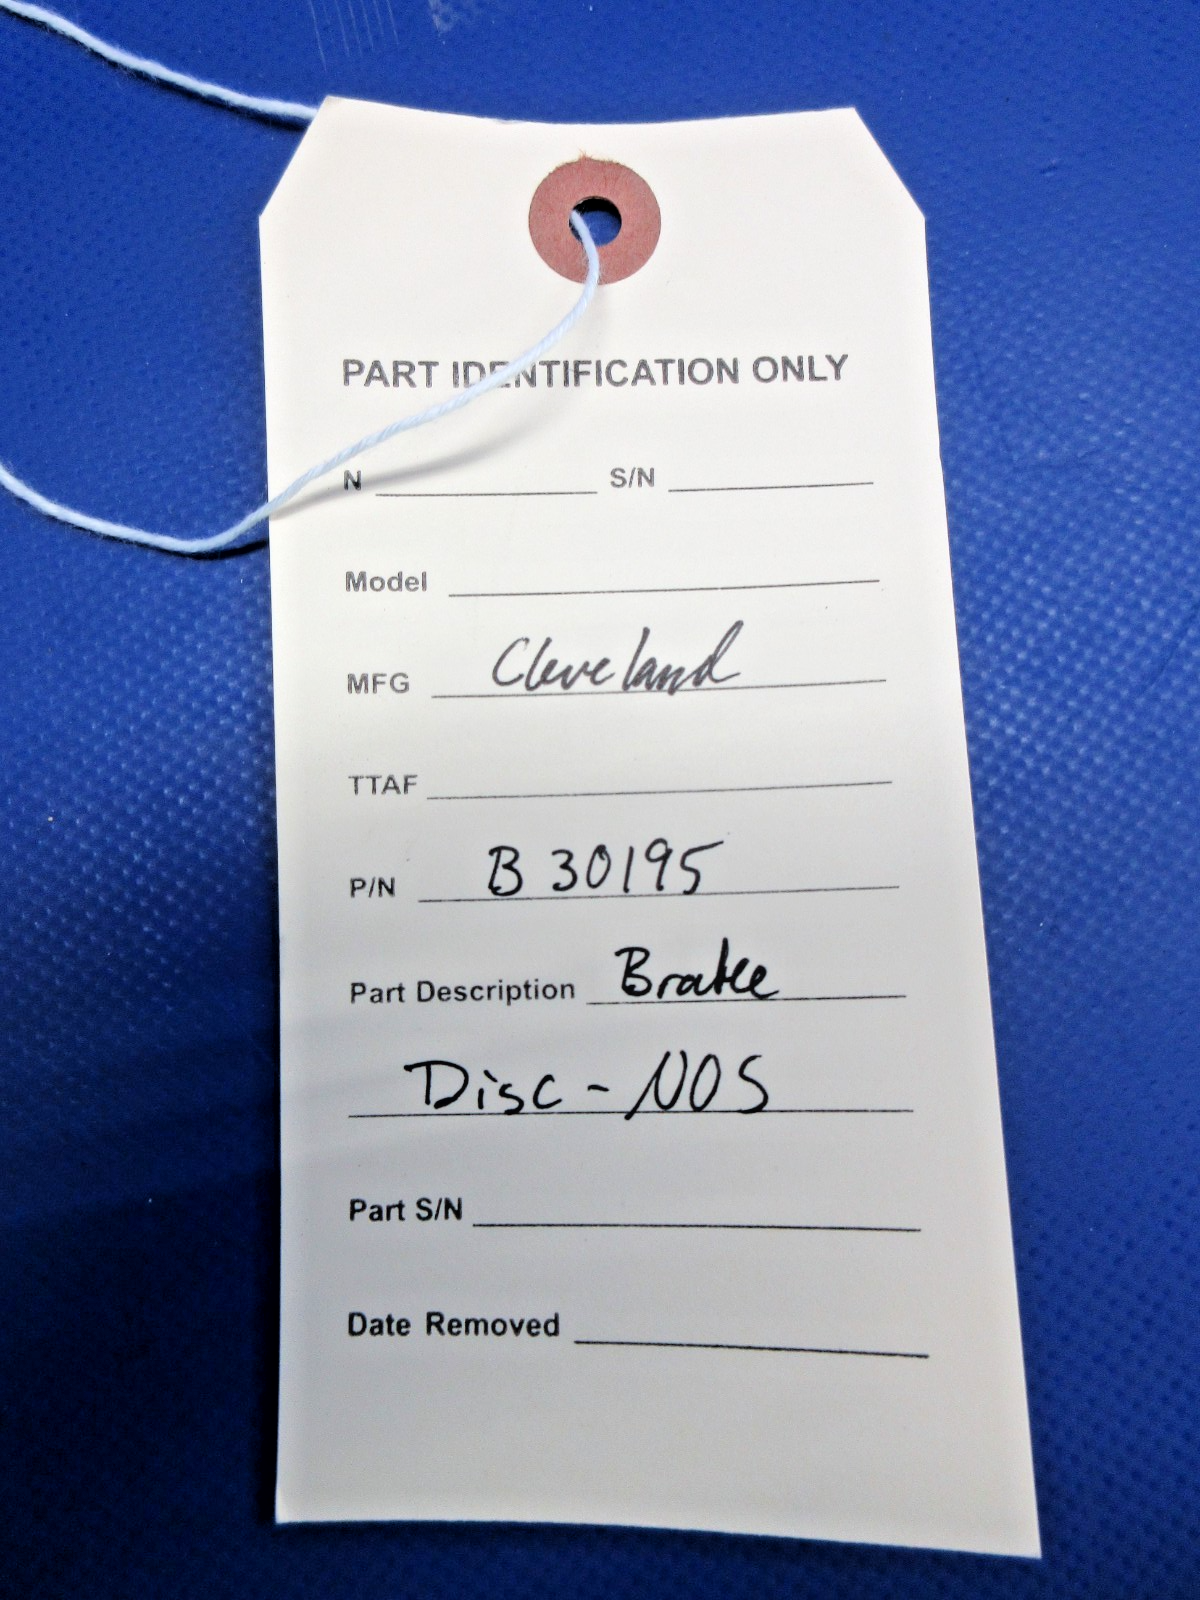 PART IDENTIFICATION ONLY
N S/N
Model
MFG Cleveland
TTAF
P/N B 30195
Part Description Brake
Disc - NOS
Part S/N
Date Removed